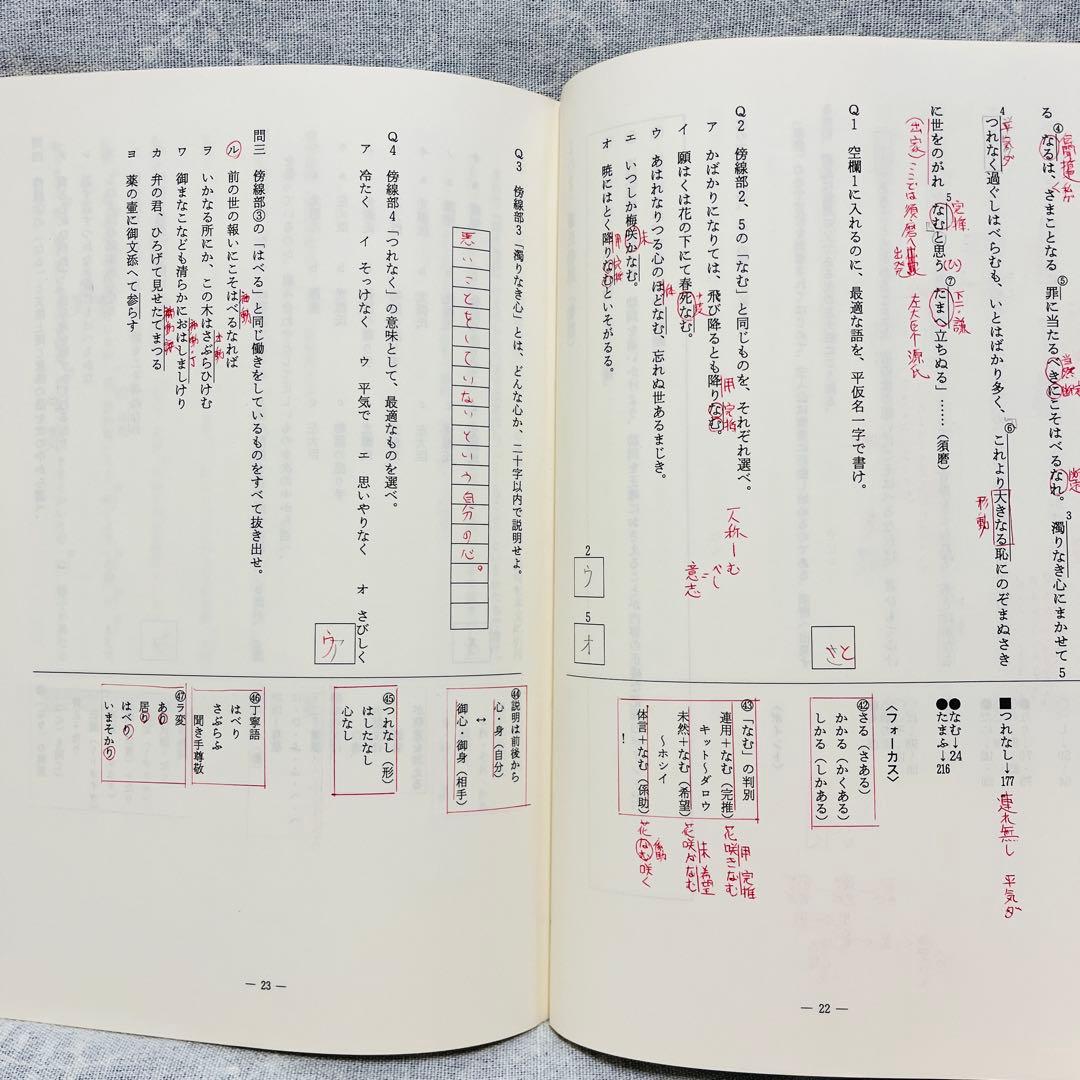 る④なるは、さまことなる⑤罪に当たるべきにこそはべるなれ。3濁りなき心にまかせて5
4つれなく過ぐしはべらむも、いとはばかり多く、⑥これより大きなる恥にのぞまぬさき
に世をのがれ5なむと思う⑦たまへ立ちぬる」……（須磨）
平気ダ
完推
下二・謙
（出家）ここでは須磨へ
出発
左大臣
源氏
形動
Q1　空欄1に入れるのに、最適な語を、平仮名一字で書け。
さと
Q2　傍線部2、5の「なむ」と同じものを、それぞれ選べ。
ア　かばかりになりては、飛び降るとも降りなむ。
用 完推
イ　願はくは花の下にて春死なむ。
ナ変
ウ　あはれなりつる心のほどなむ、忘れぬ世あるまじき。
体
エ　いつしか梅咲かなむ。
未
オ　暁にはとく降りなむといそがる。
用 完推
人称ーむ
べし
意志
2 ウ
5 オ
■つれなし→177
連れ無し　平気ダ
●なむ→24
●たまふ→216
〈フォーカス〉
㊷さる（さある）
かかる（かくある）
しかる（しかある）
㊸「なむ」の判別
連用＋なむ（完推）
キット〜ダロウ
未然＋なむ（希望）
〜ホシイ
体言＋なむ（係助）
！
花咲きなむ
用 完推
花咲かなむ
未 希望
花なむ咲く
係助
— 22 —
Q3　傍線部3「濁りなき心」とは、どんな心か、二十字以内で説明せよ。
悪いことをしていないという自分の心。
Q4　傍線部4「つれなく」の意味として、最適なものを選べ。
ア　冷たく　イ　そっけなく　ウ　平気で　エ　思いやりなく　オ　さびしく
ウ
問三　傍線部③の「はべる」と同じ働きをしているものをすべて抜き出せ。
ル　前の世の報いにこそはべるなれば
ヲ　いかなる所にか、この木はさぶらひけむ
ワ　御まなこなども清らかにおはしましけり
カ　弁の君、ひろげて見せたてまつる
ヨ　薬の壷に御文添へて参らす
㊹説明は前後から
心・身（自分）
↔
御心・御身（相手）
㊺つれなし（形）
はしたなし
心なし
㊻丁寧語
はべり
さぶらふ
聞き手尊敬
㊼ラ変
あり
居り
はべり
いまそかり
— 23 —